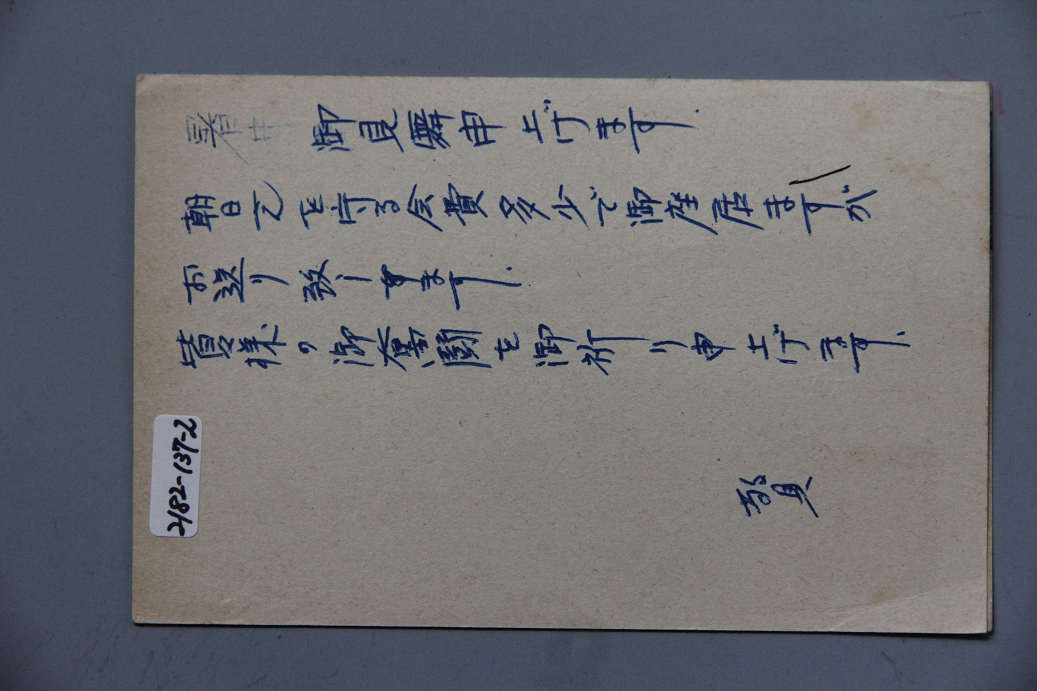 暑中 御見舞申上げます。
朝日元を守る会費多少で御座居ますが
お送り致します。
皆様の御奮闘を御祈り申上げます。
敬具
2182-137-2